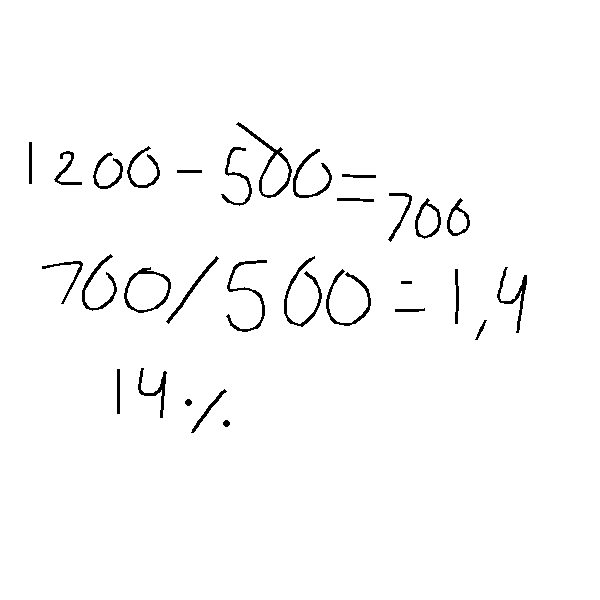 1200 - 500 = 700
700/500 = 1,4
14%